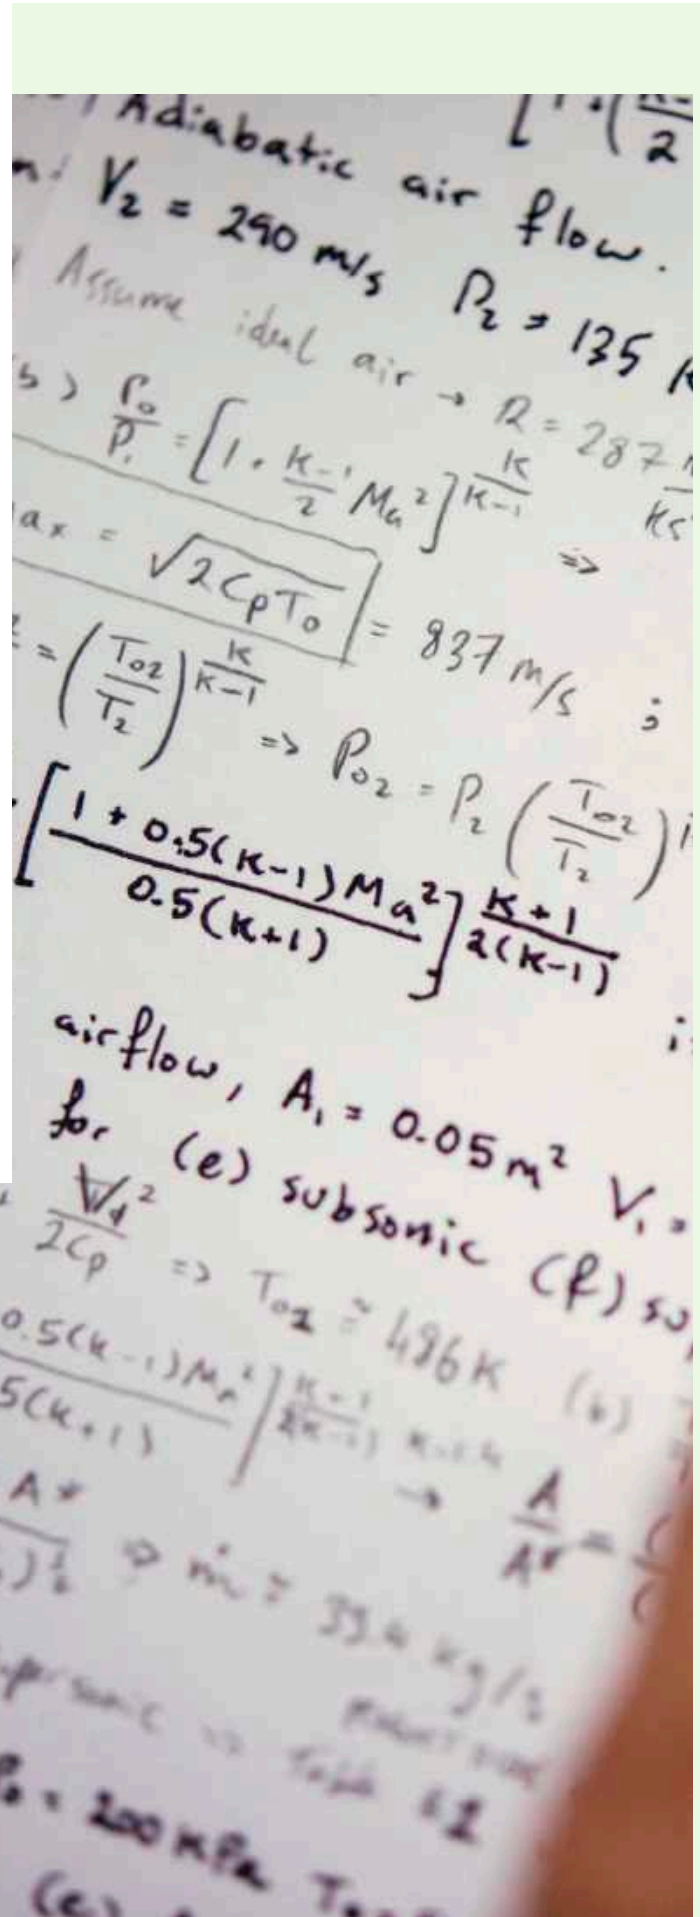 [1+(K-
2
Adiabatic air flow.
V₂ = 290 m/s P₂ = 135 K
Assume ideal air → R = 287
b) P₀/P₁ = [1 + K-1/2 Ma²]^K/K-1 ⇒
ax = √2CpT₀ = 837 m/s ;
= (T₀₂/T₂)^K/K-1 ⇒ P₀₂ = P₂ (T₀₂/T₂)
[1 + 0.5(K-1)Ma²/0.5(K+1)]^K+1/2(K-1)
airflow, A₁ = 0.05m² V₁ =
for (e) subsonic (f) su
V₁²/2Cp ⇒ T₀₁ ≈ 486K (b)
0.5(K-1)Ma²/5(K+1)] → A/A* =
A* ⇒ ṁ ≈ 39.4 kg/s
personic ⇒ Table
P₀ = 200 KPa
(e)